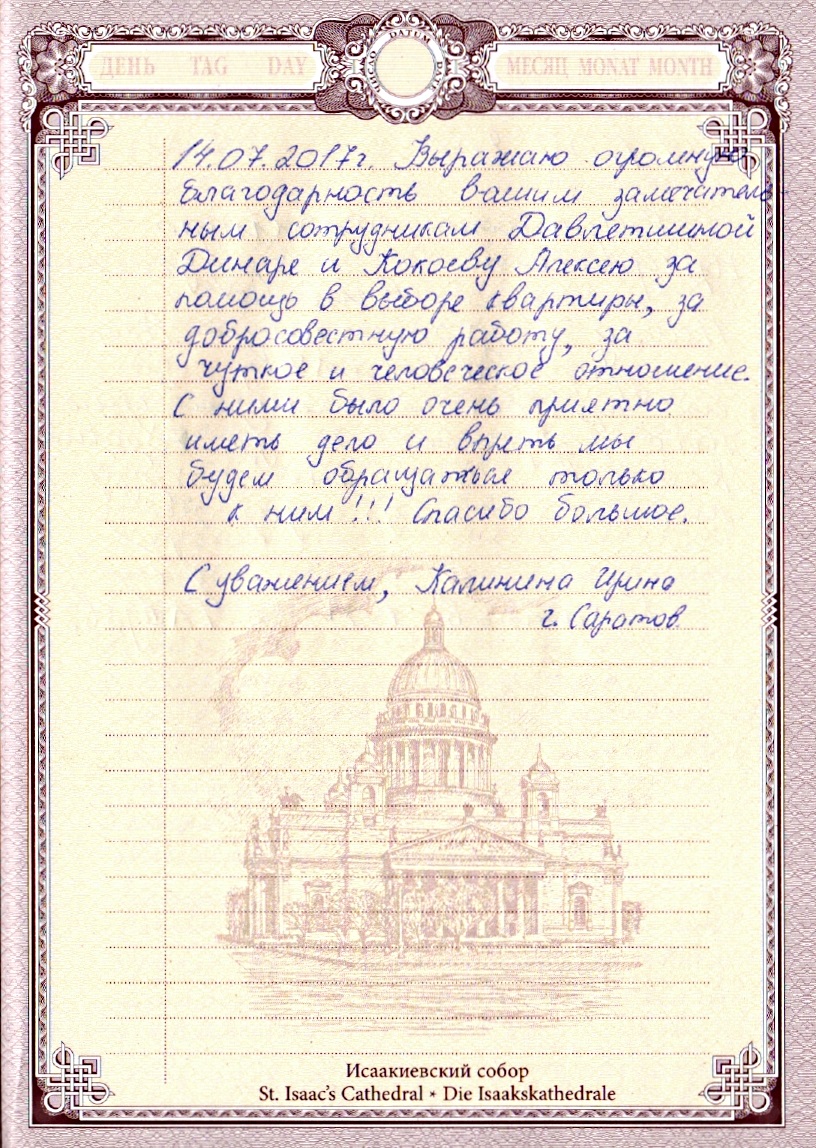 ДЕНЬ TAG DAY DATUM МЕСЯЦ MONAT MONTH
14.07.2017г. Выражаю огромную
благодарность вашим замечатель-
ным сотрудникам Давлетшиной
Динаре и Кокоеву Алексею за
помощь в выборе квартиры, за
добросовестную работу, за
чуткое и человеческое отношение.
С ними было очень приятно
иметь дело и впреть мы
будем обращаться только
к ним!!! Спасибо большое.
С уважением, Калинина Ирина
г. Саратов.
Исаакиевский собор
St. Isaac's Cathedral * Die Isaakskathedrale